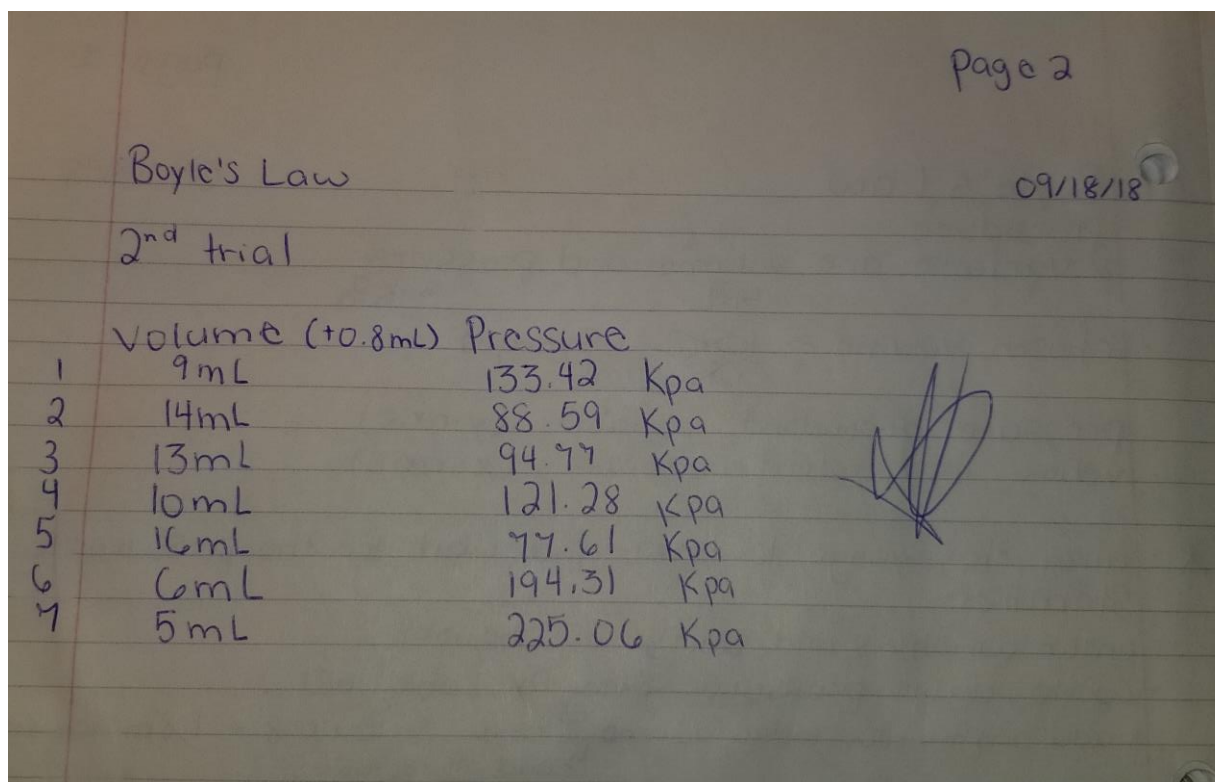 Page 2
Boyle's Law
09/18/18
2nd trial
Volume (+0.8mL) Pressure
1 9mL 133.42 Kpa
2 14mL 88.59 Kpa
3 13mL 94.77 Kpa
4 10mL 121.28 Kpa
5 16mL 77.61 Kpa
6 6mL 194.31 Kpa
7 5mL 225.06 Kpa